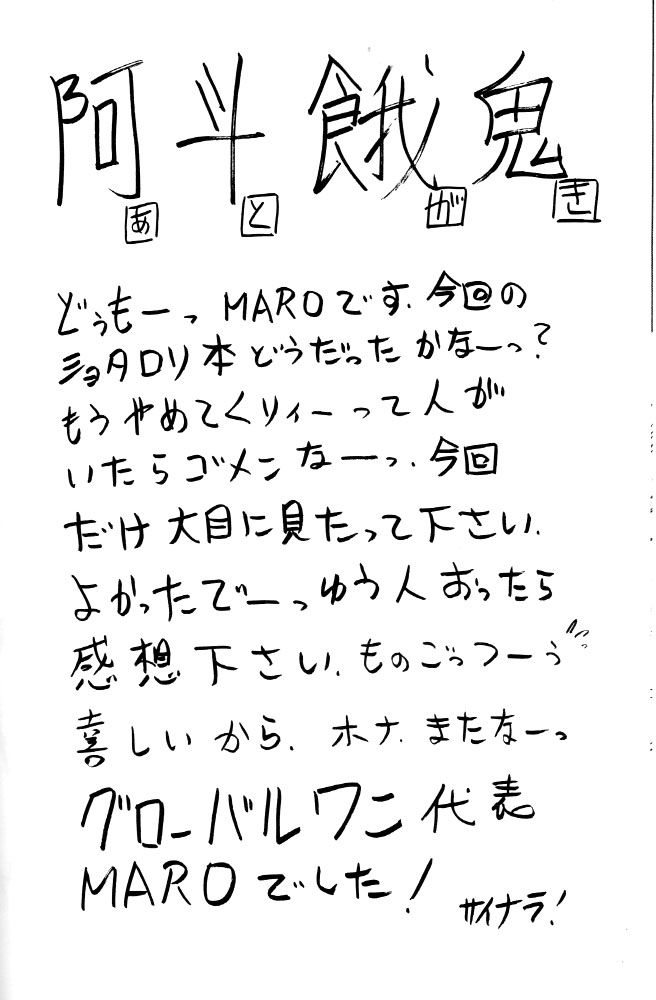 阿斗餓鬼
あとがき
どぅもーっ MAROです. 今回の
ショタロリ本どうだったかなーっ?
もうやめてくりィーって人が
いたらゴメンなーっ. 今回
だけ大目に見たって下さい.
よかったでーっゆう人おったら
感想下さい. ものごっつーぅ
喜しいから. ホナ. またなーっ
グローバルワン代表
MAROでした!
サイナラ!